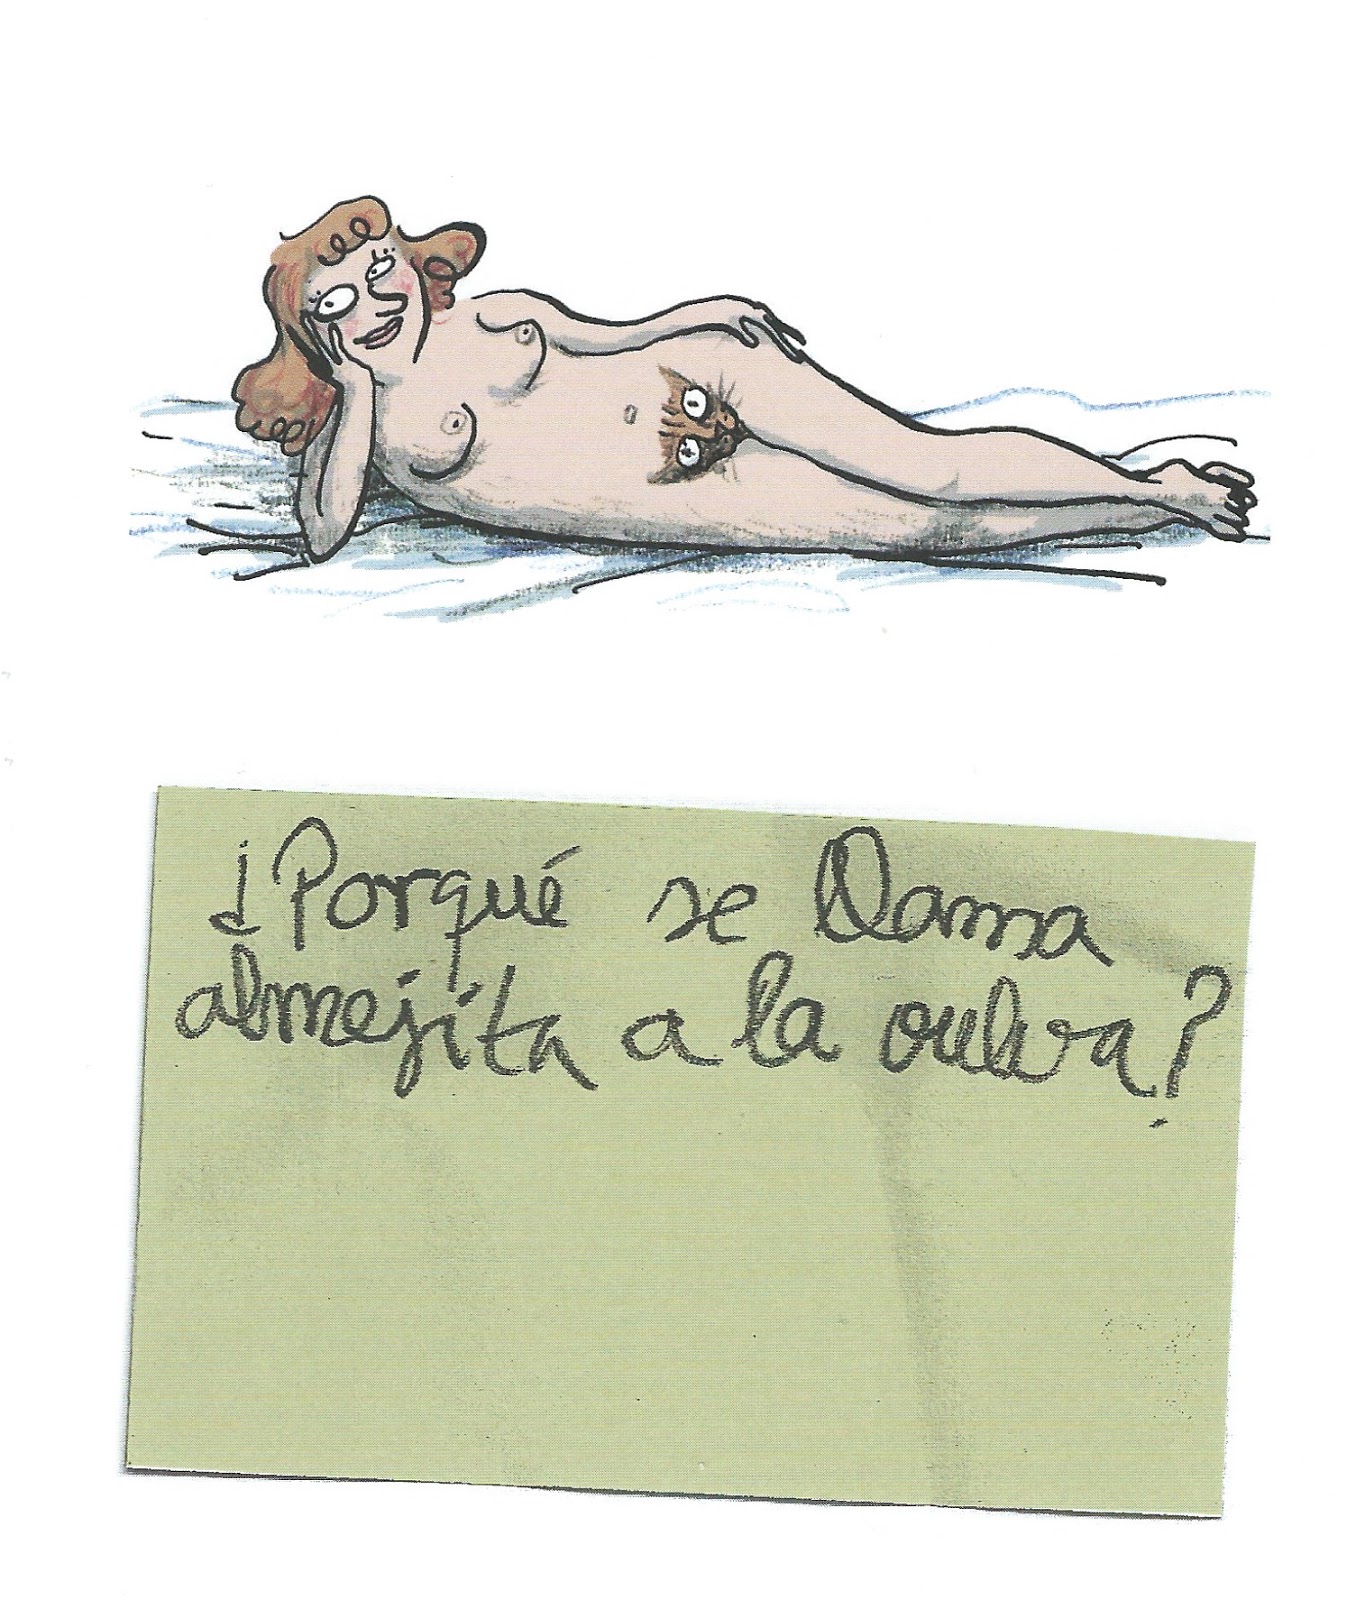 ¿Porqué se llama
almejita a la vulva?